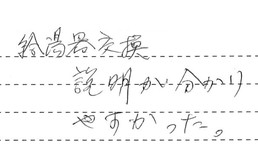 給湯器交換
説明が分かり
やすかった。